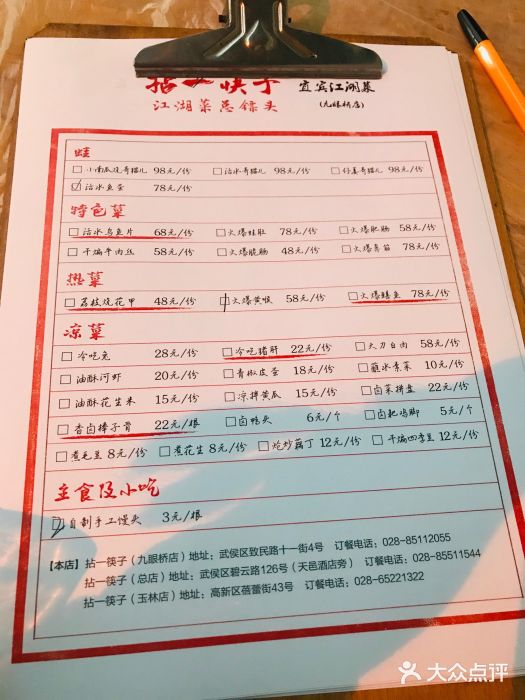 拈一筷子 宜宾江湖菜
江湖菜总馆头 (九眼桥店)
蛙
□小南瓜烧哥猫儿 98元/份 □沾水哥猫儿 98元/份 □仔姜哥猫儿 98元/份
□沾水鱼蛋 78元/份
特色菜
□沾水乌鱼片 68元/份 □火爆鲑肚 78元/份 □火爆肥肠 58元/份
□干煸牛肉丝 58元/份 □火爆脆肠 48元/份 □火爆鼻筋 78元/份
热菜
□荔枝烧花甲 48元/份 □火爆黄喉 58元/份 □火爆鳝鱼 78元/份
凉菜
□冷吃兔 28元/份 □冷吃猪肝 22元/份 □大刀白肉 58元/份
□油酥河虾 20元/份 □青椒皮蛋 18元/份 □蘸水素菜 10元/份
□油酥花生米 15元/份 □凉拌黄瓜 15元/份 □卤菜拼盘 22元/份
□香卤棒子骨 22元/根 □卤鸭头 6元/个 □卤粑鸡脚 5元/个
□煮毛豆 8元/份 □煮花生 8元/份 □炝炒藕丁 12元/份 □干煸四季豆 12元/份
主食及小吃
□自制手工馒头 3元/根
【本店】拈一筷子（九眼桥店）地址：武侯区致民路十一街4号 订餐电话：028-85112055
拈一筷子（总店）地址：武侯区碧云路126号（天邑酒店旁） 订餐电话：028-85511544
拈一筷子（玉林店）地址：高新区蓓蕾街43号 订餐电话：028-65221322
大众点评